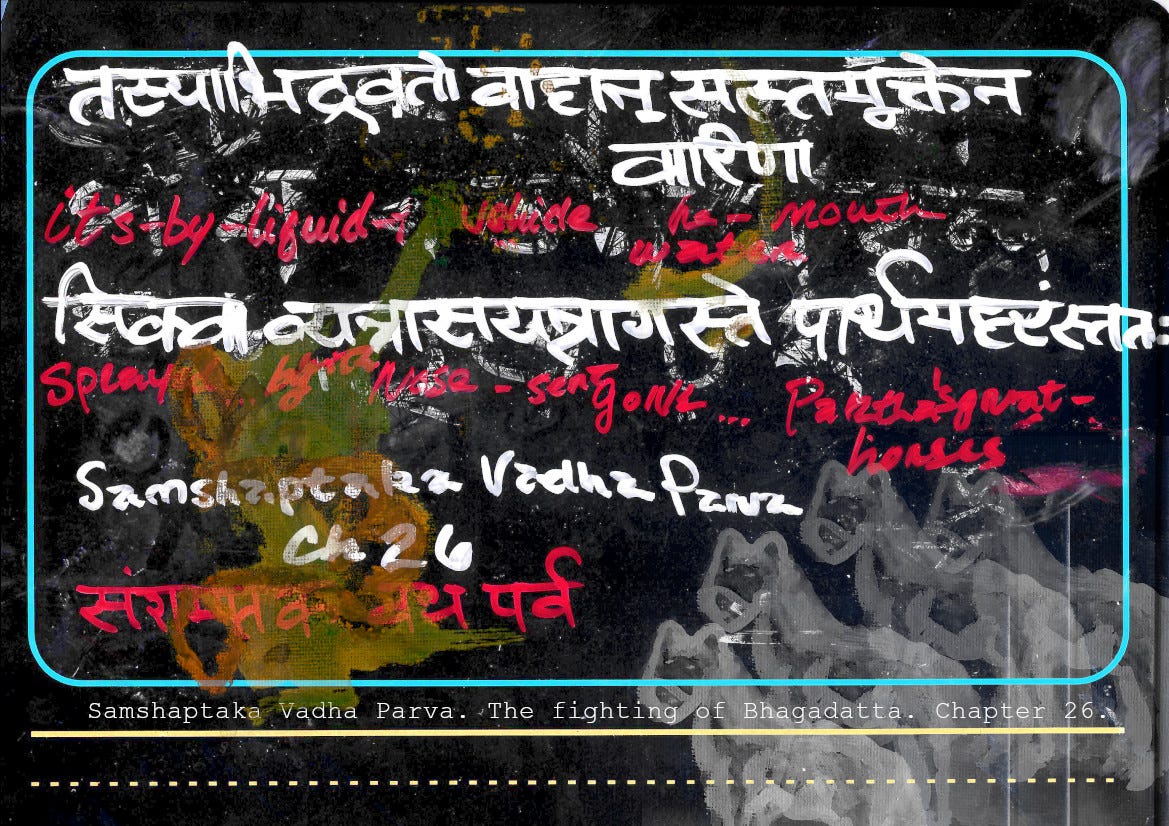 तस्याभिद्रवतो वाहान् सस्तमुक्तेन
वारिणा
it's-by-liquid- vehicle he - mouth
water
सिक्त्वा व्यत्रासयन्नागस्ते पार्थमहरंस्ततः
Spray ... by the Nose - sent gone ... Partha's great-
horses
Samshaptaka Vadha Parva
Ch 26
पर्व
Samshaptaka Vadha Parva. The fighting of Bhagadatta. Chapter 26.